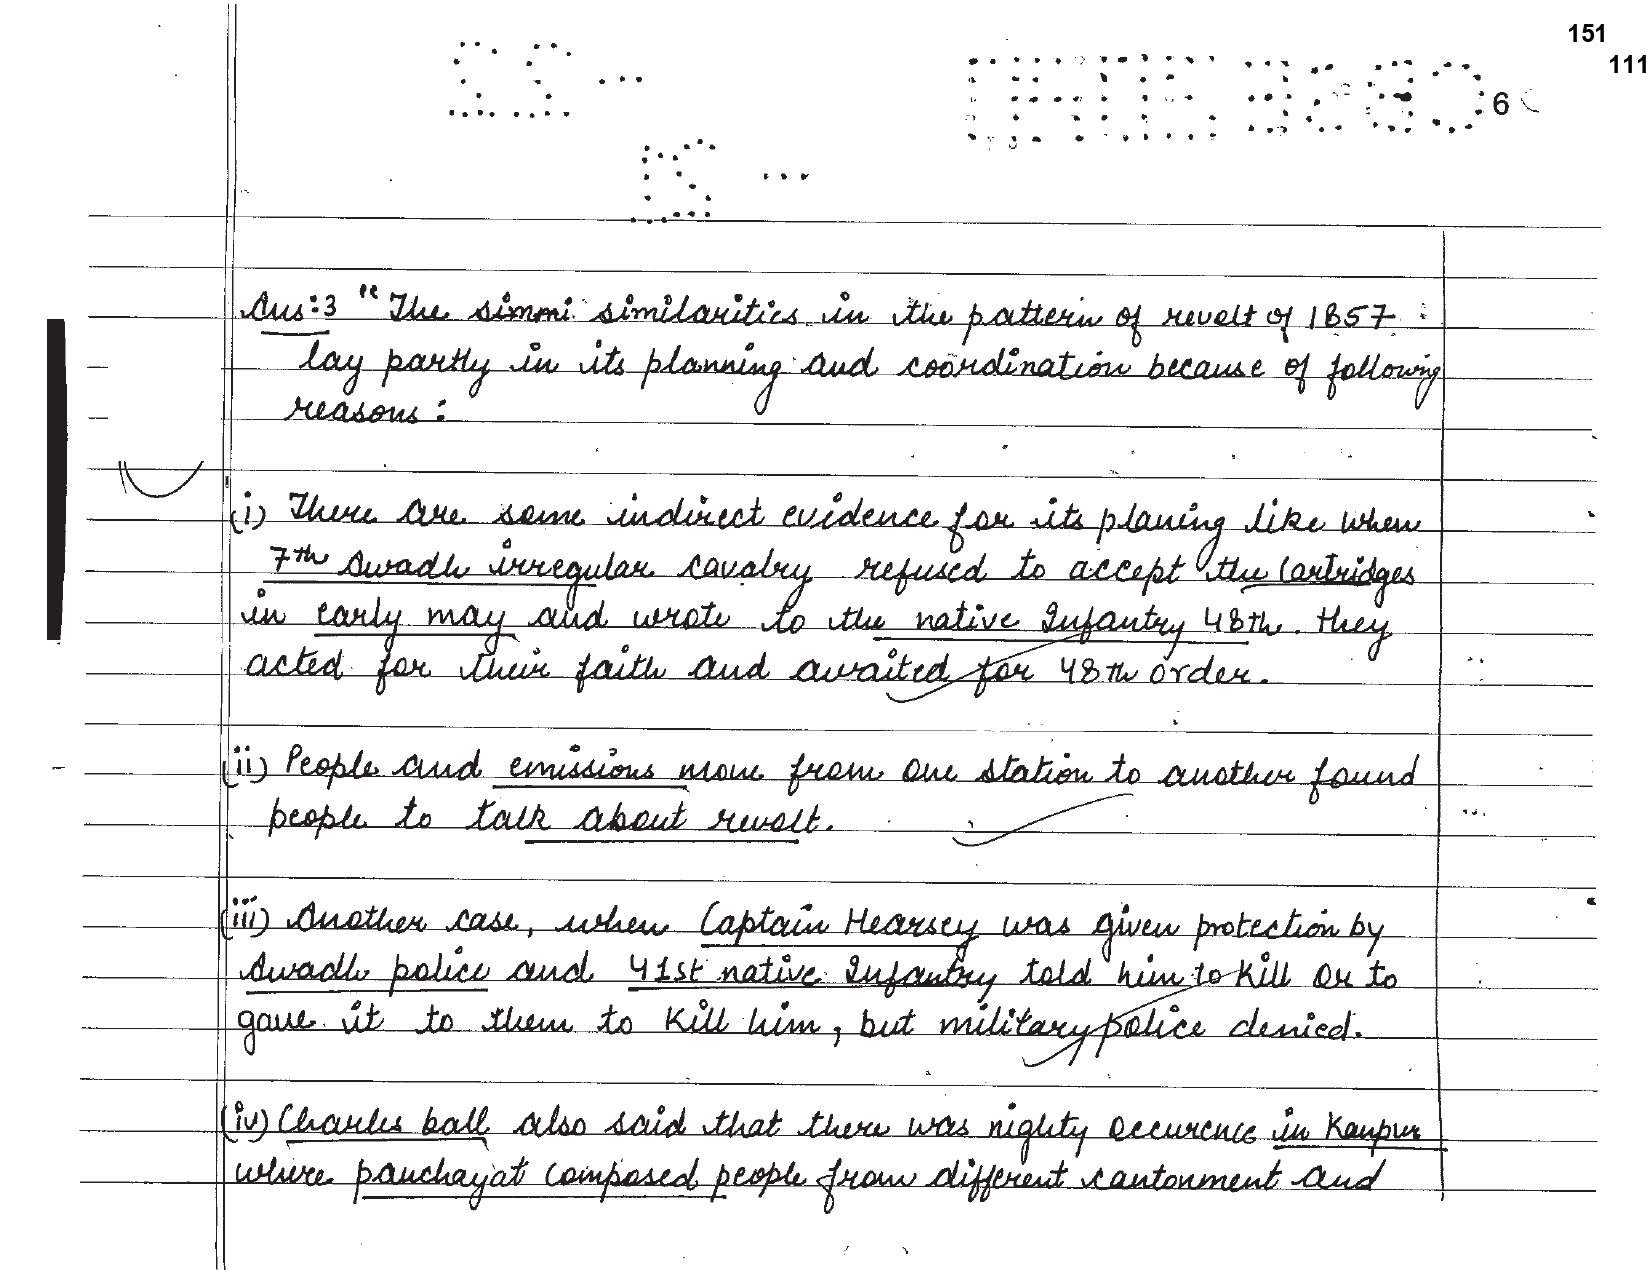 151
111
6
Ans:3 "The simmi similarities in the pattern of revolt of 1857
lay partly in its planning and coordination because of following
reasons:
(i) There are some indirect evidence for its planing like when
7th Awadh irregular cavalry refused to accept the Cartridges
in early may and wrote to the native Infantry 48th. they
acted for their faith and awaited for 48th order.
(ii) People and emissions move from one station to another found
people to talk about revolt.
(iii) Another case, when Captain Hearsey was given protection by
Awadh police and 41st native Infantry told him to kill or to
gave it to them to kill him, but military police denied.
(iv) Charles ball also said that there was nighty occurence in Kanpur
where panchayat composed people from different cantonment and